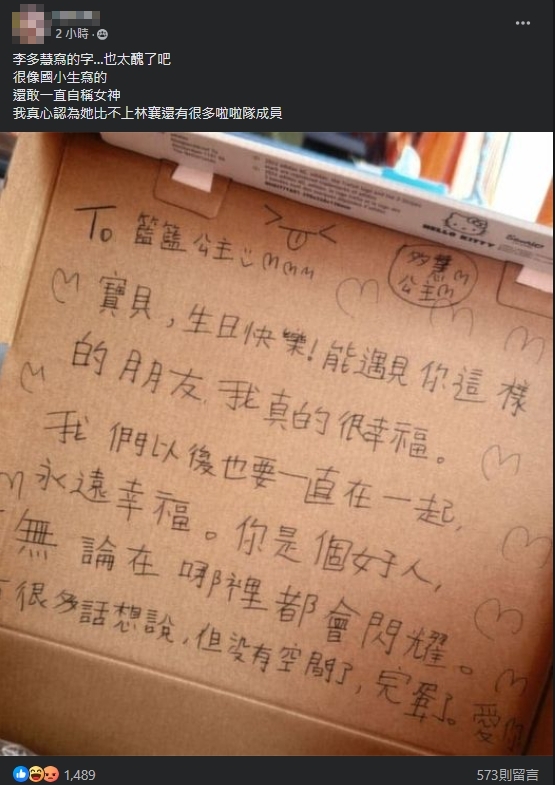 2 小時 ·
李多慧寫的字...也太醜了吧
很像國小生寫的
還敢一直自稱女神
我真心認為她比不上林襄還有很多啦啦隊成員
HELLO KITTY
Sanrio
To 籃籃公主
多慧
公主
寶貝，生日快樂！能遇見你這樣
的朋友，我真的很幸福。
我們以後也要一直在一起，
永遠幸福。你是個好人，
無論在哪裡都會閃耀。
很多話想說，但没有空間了，完蛋了。愛你
1,489
573則留言